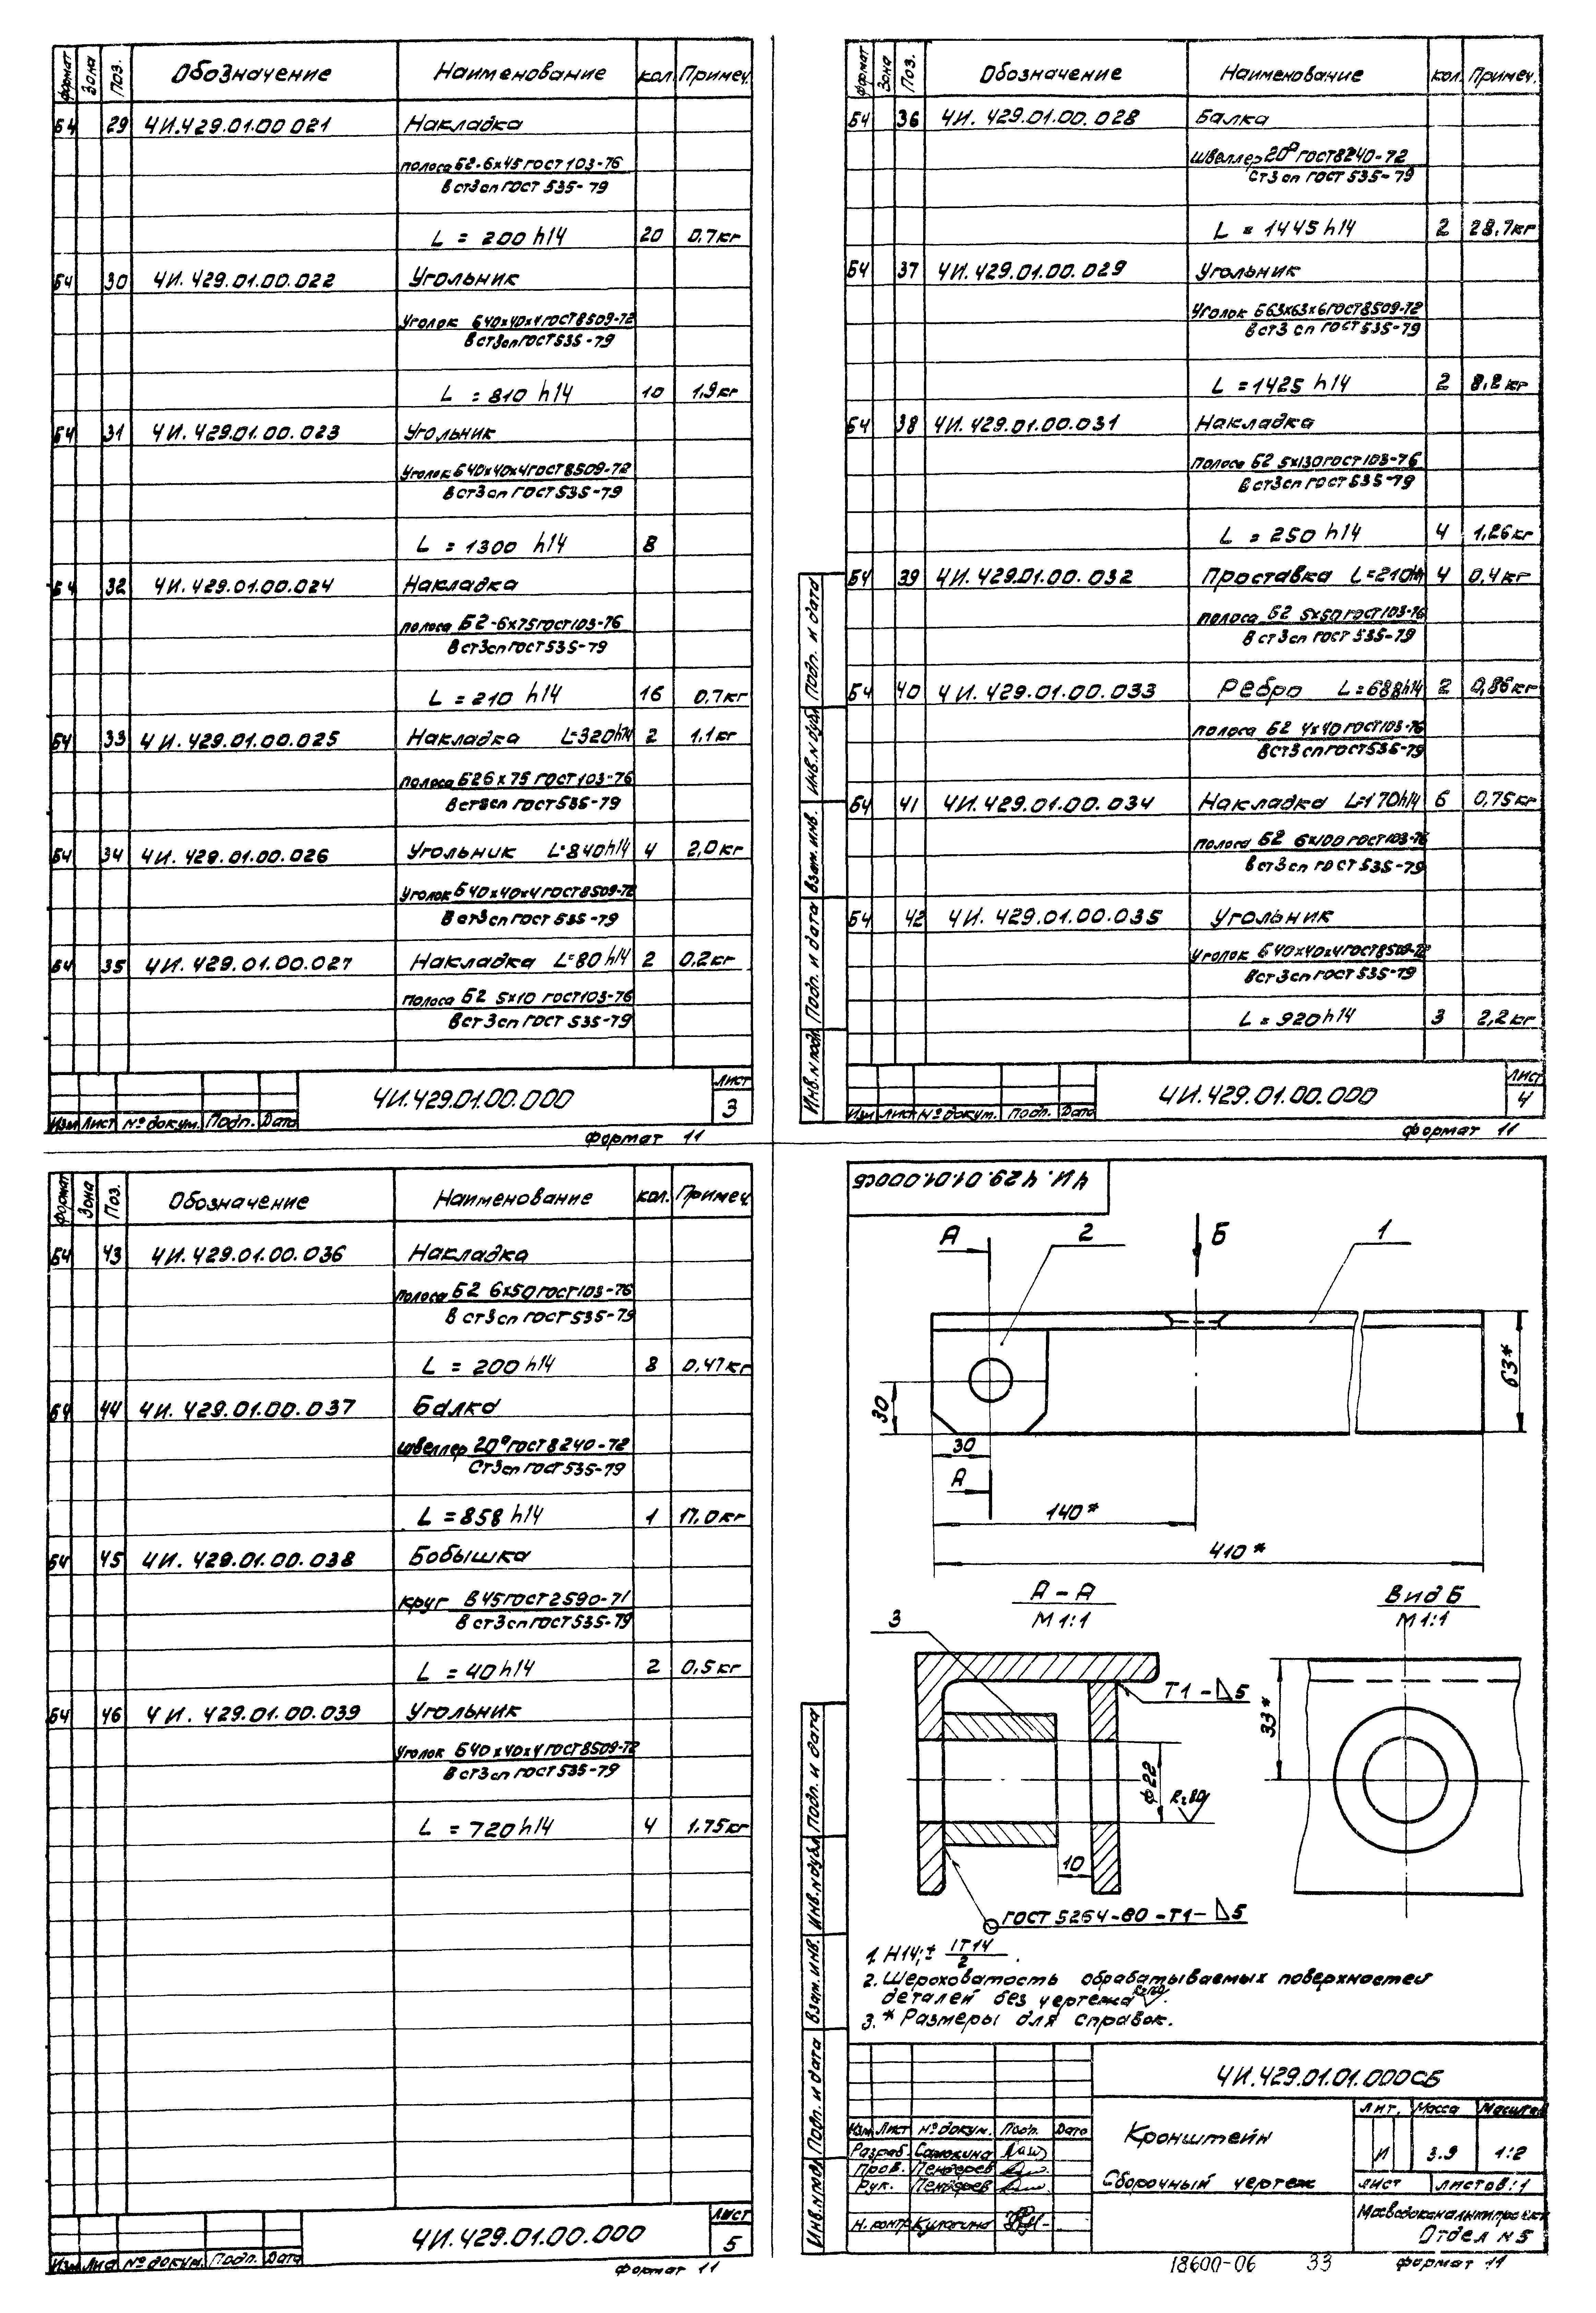 формат Зона Поз. Обозначение Наименование кол. Примеч.
Б4 29 ЧИ.429.01.00 021 Накладка
полоса Б2-6х45 ГОСТ 103-76
В ст3сп ГОСТ 535-79
L = 200 h14 20 0.7кг
Б4 30 ЧИ.429.01.00.022 Угольник
Уголок Б40х40х4 ГОСТ 8509-72
В ст3сп ГОСТ 535-79
L = 810 h14 10 1,9кг
Б4 31 ЧИ.429.01.00.023 Угольник
Уголок Б40х40х4 ГОСТ 8509-72
В ст3сп ГОСТ 535-79
L = 1300 h14 8
Б4 32 ЧИ.429.01.00.024 Накладка
полоса Б2-6х75 ГОСТ 103-76
В ст3сп ГОСТ 535-79
L = 210 h14 16 0,7кг
Б4 33 ЧИ.429.01.00.025 Накладка L=320h14 2 1,1кг
полоса Б2 6х75 ГОСТ 103-76
В ст3сп ГОСТ 535-79
Б4 34 ЧИ.429.01.00.026 Угольник L=840h14 4 2,0кг
Уголок Б40х40х4 ГОСТ 8509-72
В ст3сп ГОСТ 535-79
Б4 35 ЧИ.429.01.00.027 Накладка L=80h14 2 0.2кг
полоса Б2 5х10 ГОСТ 103-76
В ст3сп ГОСТ 535-79
Изм Лист № докум. Подп. Дата
ЧИ.429.01.00.000
Лист
3
Формат 11
формат Зона Поз. Обозначение Наименование кол. Примеч.
Б4 36 ЧИ.429.01.00.028 Балка
Швеллер 20ᵃ ГОСТ 8240-72
Ст3сп ГОСТ 535-79
L = 1445 h14 2 28,7кг
Б4 37 ЧИ.429.01.00.029 Угольник
Уголок Б63х63х6 ГОСТ 8509-72
В ст3 сп ГОСТ 535-79
L = 1425 h14 2 8,2кг
Б4 38 ЧИ.429.01.00.031 Накладка
Полоса Б2 5х130 ГОСТ 103-76
В ст3сп ГОСТ 535-79
L = 250 h14 4 1,26кг
Б4 39 ЧИ.429.01.00.032 Проставка L=210h14 4 0,4кг
полоса Б2 5х50 ГОСТ 103-76
В ст3сп ГОСТ 535-79
Б4 40 ЧИ.429.01.00.033 Ребро L=688h14 2 0,86кг
полоса Б2 4х40 ГОСТ 103-76
В ст3сп ГОСТ 535-79
Б4 41 ЧИ.429.01.00.034 Накладка L=170h14 6 0,75кг
полоса Б2 6х100 ГОСТ 103-76
В ст3сп ГОСТ 535-79
Б4 42 ЧИ.429.01.00.035 Угольник
Уголок Б40х40х4 ГОСТ 8509-72
В ст3сп ГОСТ 535-79
L = 920h14 3 2,2кг
Инв.N подл. Подп. и дата Взам. инв. Инв.N дубл. Подп. и дата
Изм Лист № докум. Подп. Дата
ЧИ.429.01.00.000
Лист
4
Формат 11
формат Зона Поз. Обозначение Наименование кол. Примеч.
Б4 43 ЧИ.429.01.00.036 Накладка
полоса Б2 6х50 ГОСТ 103-76
В ст3сп ГОСТ 535-79
L = 200 h14 8 0,47кг
Б4 44 ЧИ.429.01.00.037 Балка
швеллер 20ᵃ ГОСТ 8240-72
Ст3сп ГОСТ 535-79
L = 858 h14 1 17,0кг
Б4 45 ЧИ.429.01.00.038 Бобышка
круг В45 ГОСТ 2590-71
В ст3сп ГОСТ 535-79
L = 40h14 2 0,5кг
Б4 46 ЧИ.429.01.00.039 Угольник
Уголок Б40х40х4 ГОСТ 8509-72
В ст3сп ГОСТ 535-79
L = 720h14 4 1.75кг
Изм Лист № докум. Подп. Дата
ЧИ.429.01.00.000
Лист
5
Формат 11
ЧИ.429.01.01.000СБ
А 2 Б 1
30
63*
30
А
140*
410*
А-А
М 1:1
Вид Б
М 1:1
3
Т1-◺5
33*
ф22
Rz80
10
ГОСТ 5264-80-Т1-◺5
1. H14; ± IT14/2.
2. Шероховатость обрабатываемых поверхностей
деталей без чертежа.
3.* Размеры для справок.
Инв.N подл. Подп. и дата Взам.инв. Инв.N дубл. Подп. и дата
ЧИ.429.01.01.000СБ
Изм Лист № докум. Подп. Дата
Разраб.
Пров. Пендерев
Рук. Пендерев
Н.контр Кулагина
Кронштейн
Сборочный чертеж
Лит. Масса Масштаб
И 3.9 1:2
Лист Листов:1
Мосводоканалниипроект
Отдел N5
18600-06 33 Формат 11